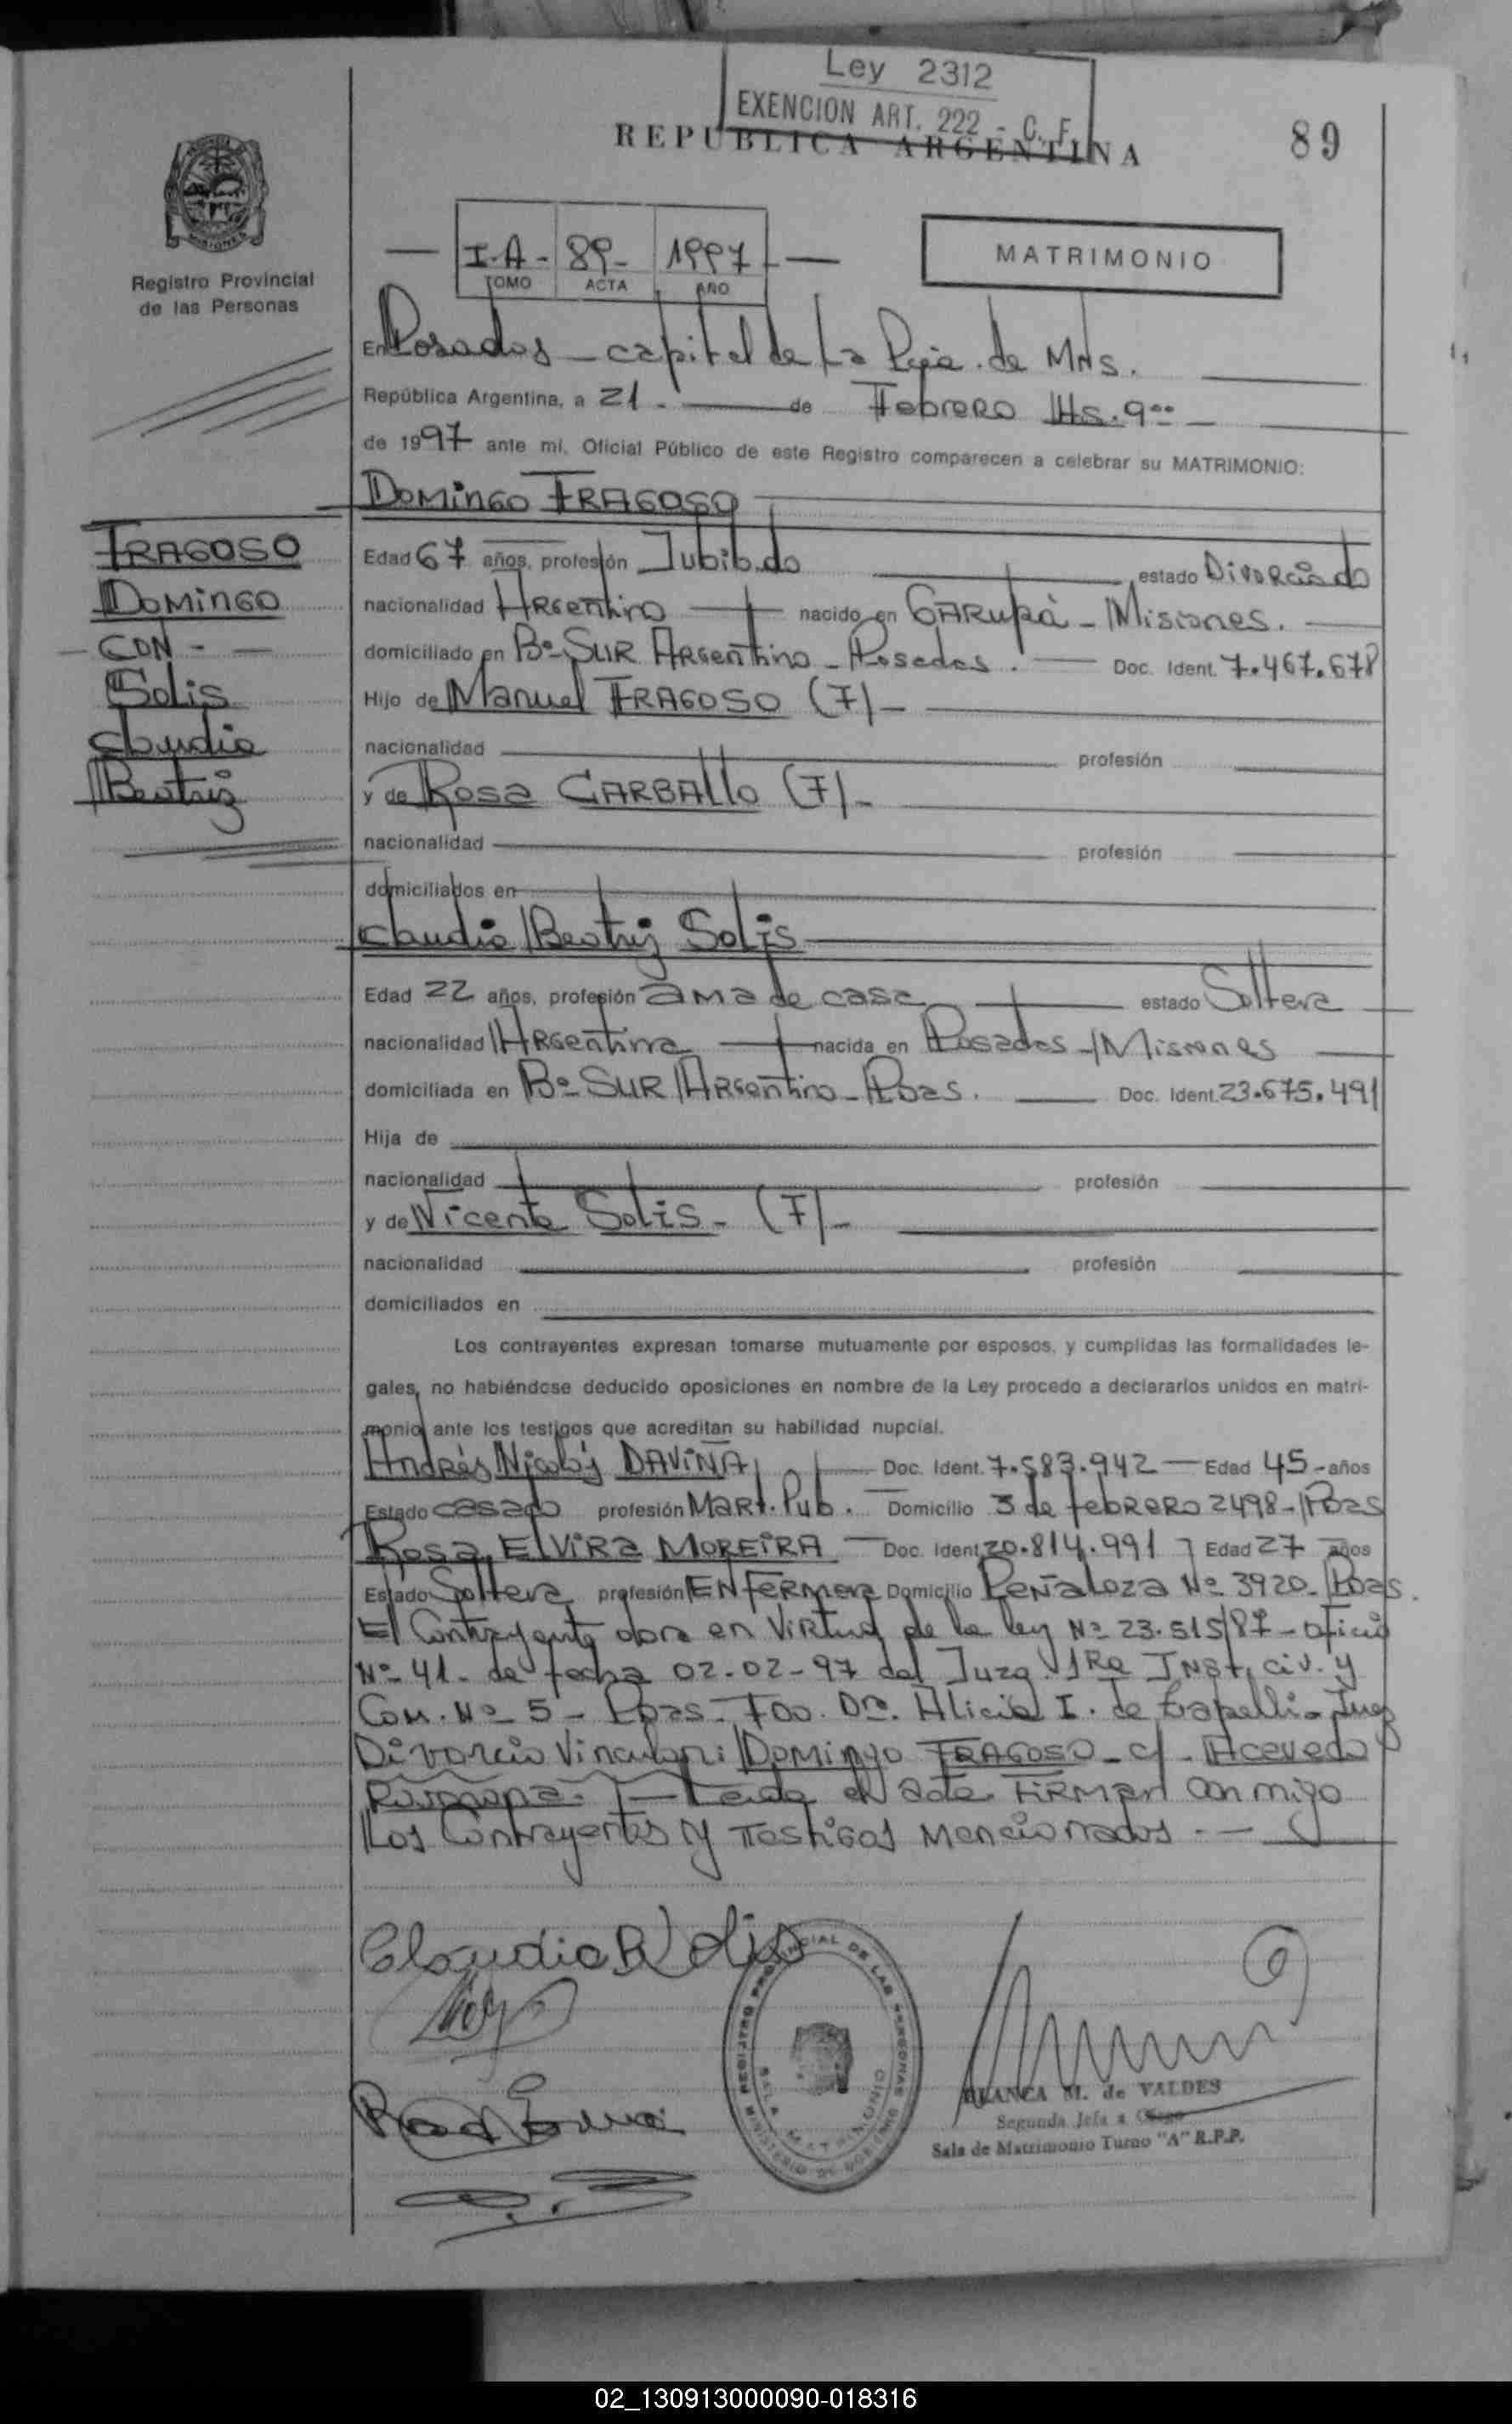 Ley 2312
EXENCION ART. 222 - C. F.
REPUBLICA ARGENTINA
89
MISIONES
Registro Provincial
de las Personas
I-A- 89- 1997
TOMO ACTA AÑO
MATRIMONIO
En Posadas - capital de La Pcia. de Mns.
República Argentina, a 21 - de Febrero Hs. 9ºº
de 1997 ante mi, Oficial Público de este Registro comparecen a celebrar su MATRIMONIO:
DOMINGO FRAGOSO
FRAGOSO
DOMINGO
- CON - -
Solis
Claudia
Beatriz
Edad 67 años, profesión Jubilado estado Divorciado
nacionalidad Argentino nacido en GARUPÁ - Misiones.
domiciliado en Bº SUR Argentino - Posadas. Doc. Ident. 7.467.678
Hijo de Manuel FRAGOSO (F) -
nacionalidad profesión
y de Rosa CARBALLO (F) -
nacionalidad profesión
domiciliados en
Claudia Beatriz Solis
Edad 22 años, profesión ama de casa estado Soltera
nacionalidad Argentina nacida en Posadas - Misiones
domiciliada en Bº SUR Argentino - Pdas. Doc. Ident. 23.675.491
Hija de
nacionalidad profesión
y de Vicenta Solis - (F) -
nacionalidad profesión
domiciliados en
Los contrayentes expresan tomarse mutuamente por esposos, y cumplidas las formalidades le-
gales, no habiéndose deducido oposiciones en nombre de la Ley procedo a declararlos unidos en matri-
monio ante los testigos que acreditan su habilidad nupcial.
Andrés Nicolás DAVIÑA Doc. Ident. 7.583.942 Edad 45 - años
Estado casado profesión Mart. Pub. Domicilio 3 de febrero 2498 - Pdas
Rosa Elvira MOREIRA Doc. Ident. 20.814.991 Edad 27 años
Estado Soltera profesión Enfermera Domicilio Peñaloza Nº 3920 - Pdas.
El Contrayente obra en Virtud de la ley Nº 23.515/87 - Oficio
Nº 41 - de fecha 02-02-97 del Juzg. 1Ra Inst. civ. y
Com. Nº 5 - Pdas - Fdo. Dra. Alicia I. de - Juez
Divorcio Vincular: Domingo FRAGOSO - c/ - Acevedo
Leida el acta FIRMAN conmigo
Los Contrayentes y Testigos Mencionados. -
Claudia B Solis
REGISTRO PROVINCIAL DE LAS PERSONAS
SALA MATRIMONIO
MINISTERIO DE GOBIERNO
BLANCA M. de VALDES
Segunda Jefa a Cargo
Sala de Matrimonio Turno "A" R.P.P.
02_130913000090-018316